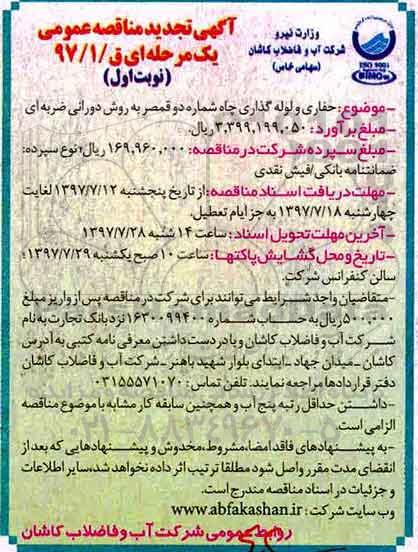 وزارت نیرو
شرکت آب و فاضلاب کاشان
(سهامی خاص)
ISO 9001
آگهی تجدید مناقصه عمومی
یک مرحله ای ق/۹۷/۱
(نوبت اول)
-موضوع: حفاری و لوله گذاری چاه شماره دو قمصر به روش دورانی ضربه ای
-مبلغ برآورد: ۳،۳۹۹،۱۹۹،۰۵۰ ریال.
-مبلغ سپرده شرکت در مناقصه: ۱۶۹،۹۶۰،۰۰۰ ریال؛ نوع سپرده:
ضمانتنامه بانکی/فیش نقدی
-مهلت دریافت اسناد مناقصه: از تاریخ پنجشنبه ۱۳۹۷/۷/۱۲ لغایت
چهارشنبه ۱۳۹۷/۷/۱۸ به جز ایام تعطیل.
-آخرین مهلت تحویل اسناد: ساعت ۱۴ شنبه ۱۳۹۷/۷/۲۸
-تاریخ و محل گشایش پاکتها: ساعت ۱۰ صبح یکشنبه ۱۳۹۷/۷/۲۹؛
سالن کنفرانس شرکت.
-متقاضیان واجد شرایط می توانند برای شرکت در مناقصه پس از واریز مبلغ
۵۰۰،۰۰۰ ریال به حساب شماره ۱۶۳۰۰۹۹۴۰۰ نزد بانک تجارت به نام
شرکت آب و فاضلاب کاشان و با در دست داشتن معرفی نامه کتبی به آدرس
کاشان -میدان جهاد -ابتدای بلوار شهید باهنر -شرکت آب و فاضلاب کاشان
دفتر قراردادها مراجعه نمایند. تلفن تماس: ۰۳۱۵۵۵۷۱۰۷۰
-داشتن حداقل رتبه پنج آب و همچنین سابقه کار مشابه با موضوع مناقصه
الزامی است.
-به پیشنهادهای فاقد امضا، مشروط، مخدوش و پیشنهادهایی که بعد از
انقضای مدت مقرر واصل شود مطلقا ترتیب اثر داده نخواهد شد، سایر اطلاعات
و جزئیات در اسناد مناقصه مندرج است.
وب سایت شرکت: www.abfakashan.ir
روابط عمومی شرکت آب و فاضلاب کاشان